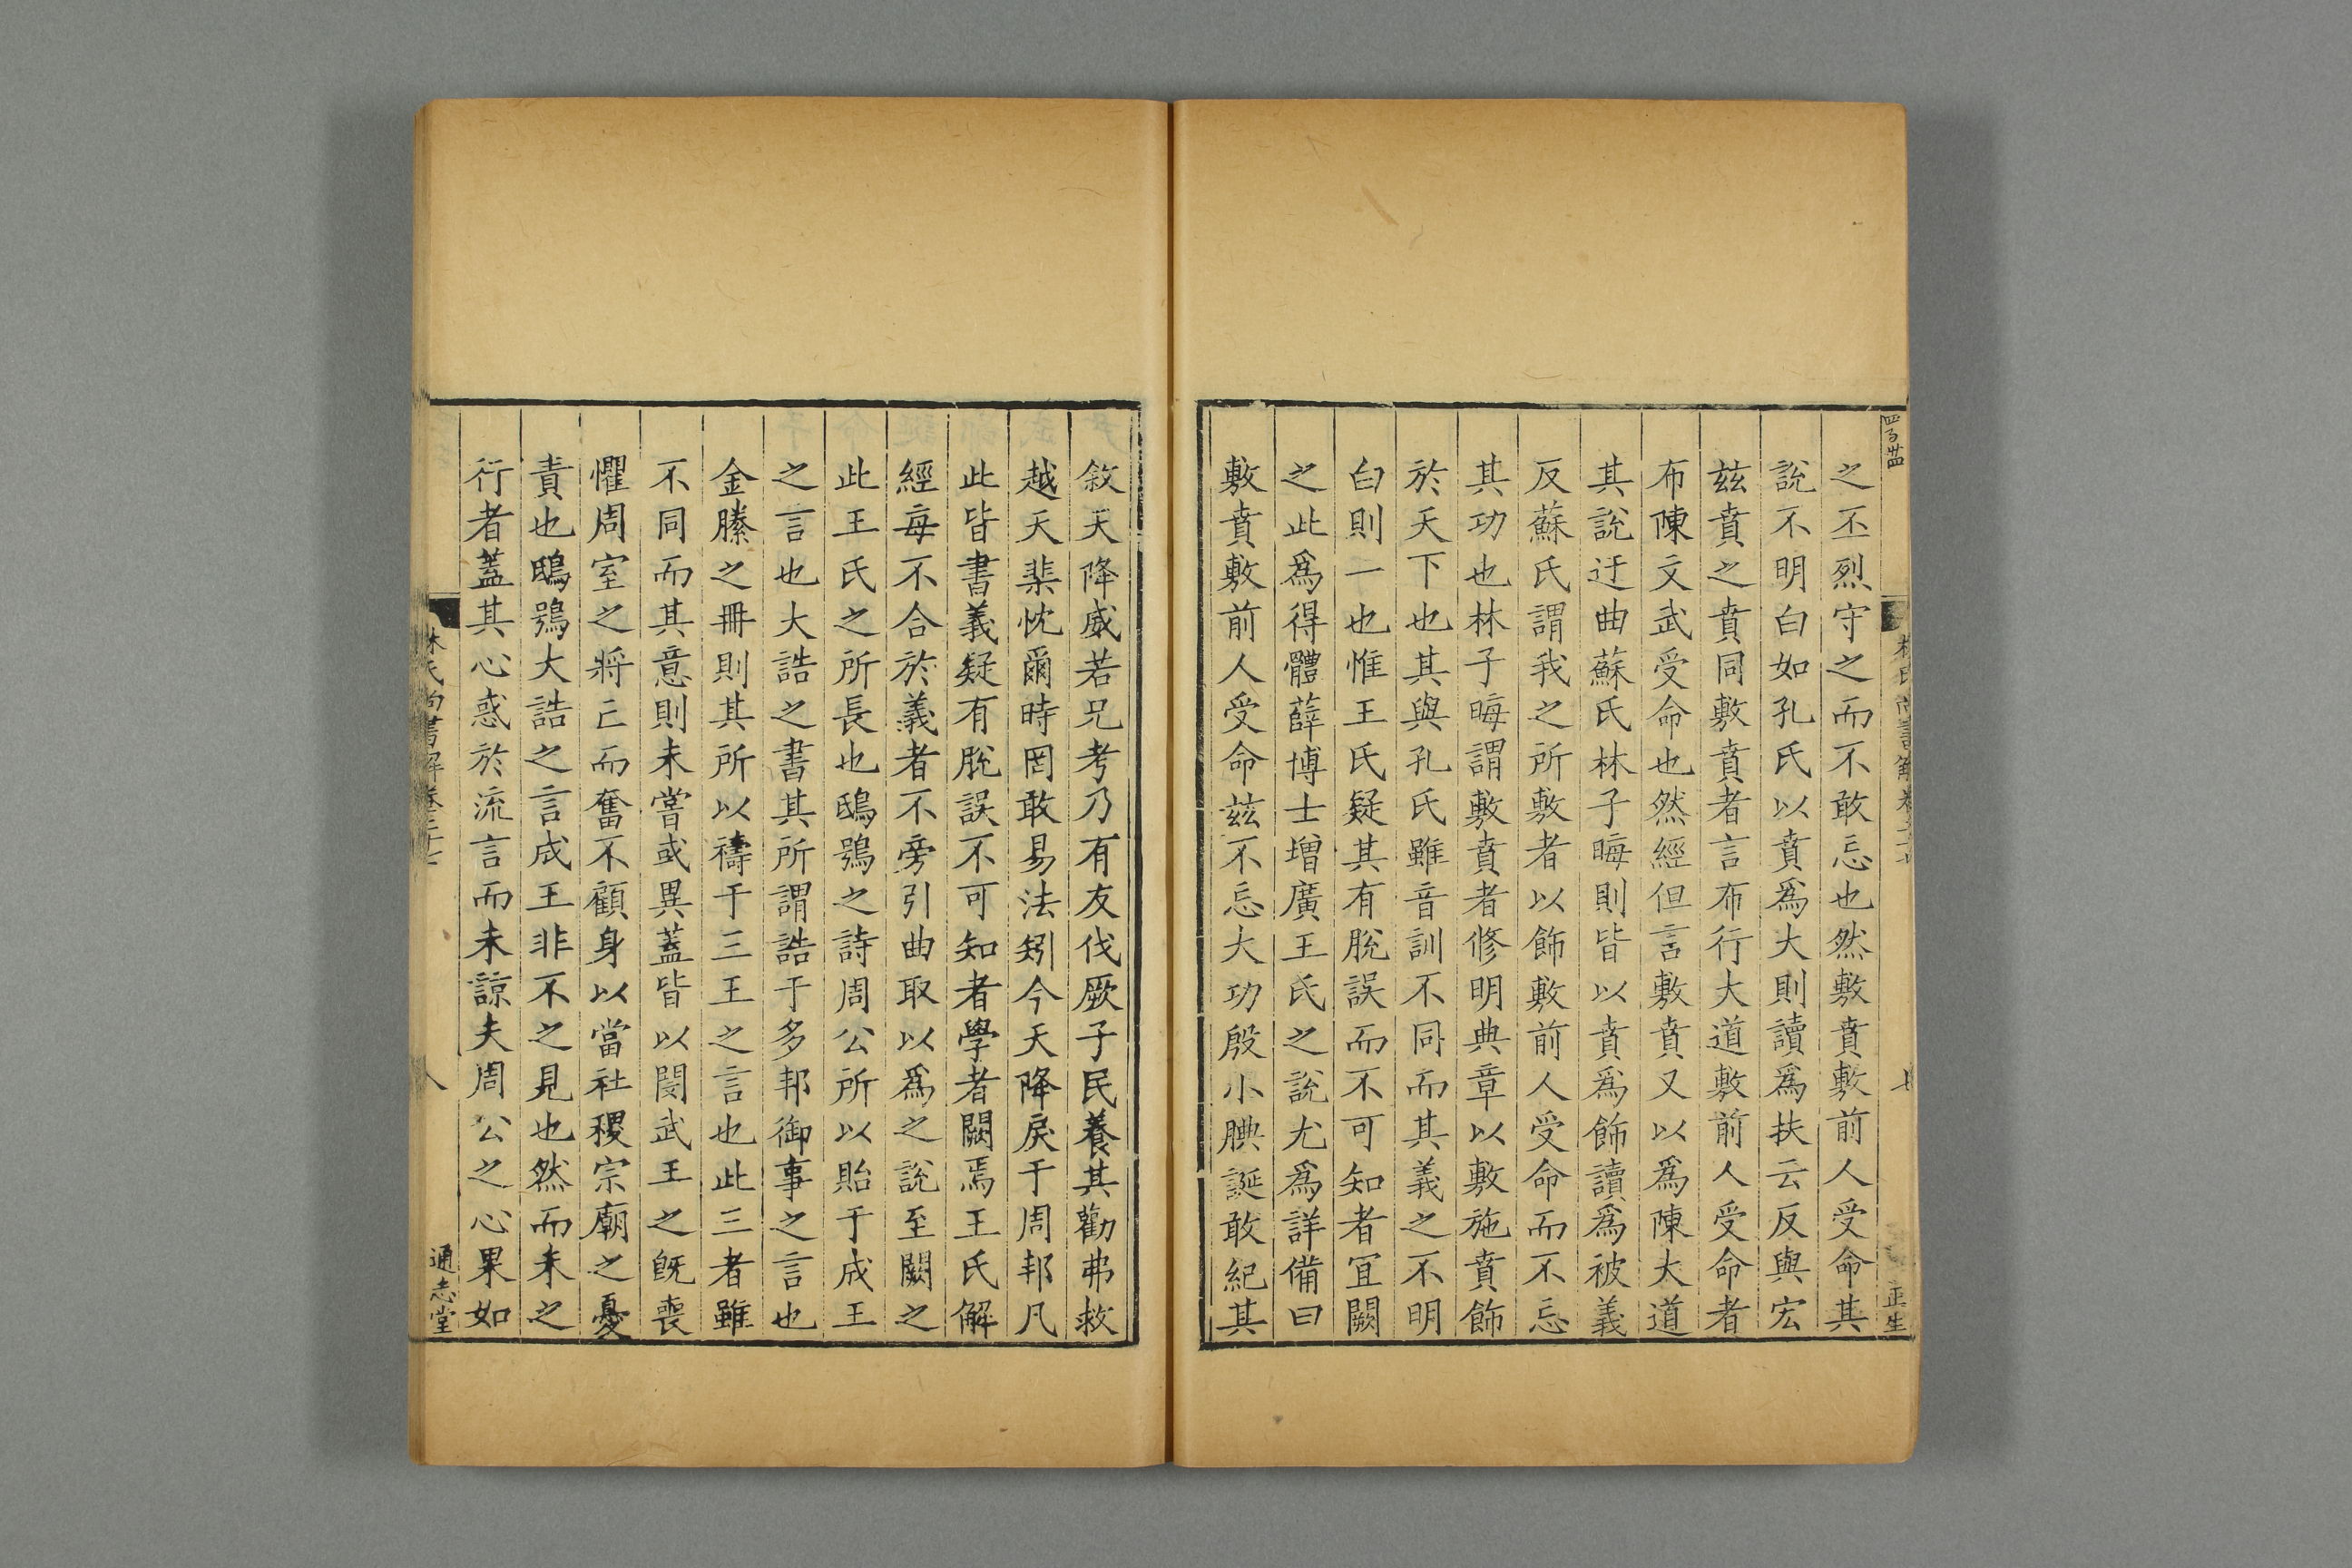 之丕烈守之而不敢忘也然敷賁敷前人受命其
說不明白如孔氏以賁爲大則讀爲扶云反與宏
玆賁之賁同敷賁者言布行大道敷前人受命者
布陳文武受命也然經但言敷賁又以爲陳大道
其說迂曲蘇氏林子晦則皆以賁爲飾讀爲被義
反蘇氏謂我之所敷者以飾敷前人受命而不忘
其功也林子晦謂敷賁者修明典章以敷施賁飾
於天下也其與孔氏雖音訓不同而其義之不明
白則一也惟王氏疑其有脫誤而不可知者宜闕
之此爲得體薛博士增廣王氏之說尤爲詳備曰
敷賁敷前人受命茲不忘大功殷小腆誕敢紀其
敘天降威若兄考乃有友伐厥子民養其勸弗救
越天棐忱爾時罔敢易法矧今天降戾于周邦凡
此皆書義疑有脫誤不可知者學者闕焉王氏解
經每不合於義者不旁引曲取以爲之說至闕之
此王氏之所長也鴟鴞之詩周公所以貽于成王
之言也大誥之書其所謂誥于多邦御事之言也
金縢之冊則其所以禱于三王之言也此三者雖
不同而其意則未嘗或異蓋皆以閔武王之旣喪
懼周室之將亡而奮不顧身以當社稷宗廟之憂
責也鴟鴞大誥之言成王非不之見也然而未之
行者蓋其心惑於流言而未諒夫周公之心果如
林氏尚書解卷二十七
八
通志堂